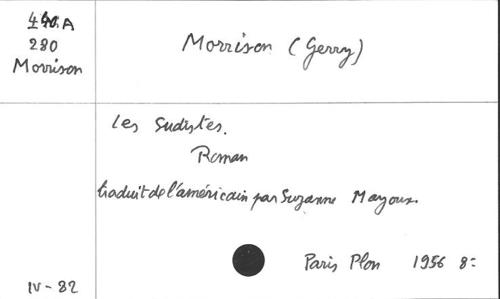 Morrison (Gerry)
280
Morrison
Les Sudistes.
Roman
traduit de l'américain par Suzanne Mayoux.
Paris Plon 1956 8=
IV-82